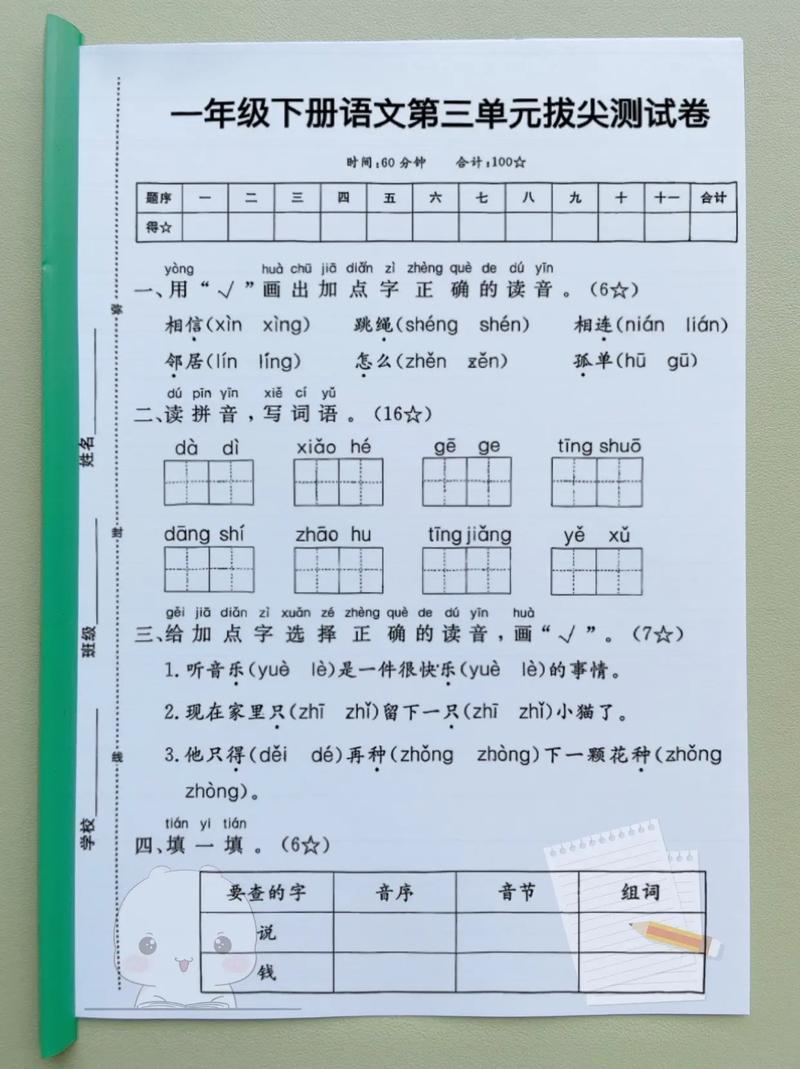 一年级下册语文第三单元拔尖测试卷
时间:60分钟 合计:100☆
题序 一 二 三 四 五 六 七 八 九 十 十一 合计
得☆
yòng huà chū jiā diǎn zì zhèng què de dú yīn
一、用“√”画出加点字正确的读音。(6☆)
相信(xìn xìng) 跳绳(shéng shén) 相连(nián lián)
邻居(lín líng) 怎么(zhěn zěn) 孤单(hū gū)
dú pīn yīn xiě cí yǔ
二、读拼音,写词语。(16☆)
dà dì xiǎo hé gē ge tīng shuō
dāng shí zhāo hu tīng jiǎng yě xǔ
gěi jiā diǎn zì xuǎn zé zhèng què de dú yīn huà
三、给加点字选择正确的读音,画“√”。(7☆)
1.听音乐(yuè lè)是一件很快乐(yuè lè)的事情。
2.现在家里只(zhī zhǐ)留下一只(zhī zhǐ)小猫了。
3.他只得(děi dé)再种(zhǒng zhòng)下一颗花种(zhǒng
zhòng)。
tián yi tián
四、填一填。(6☆)
要查的字 音序 音节 组词
说
钱
姓名
班级
学校
弥
封
线